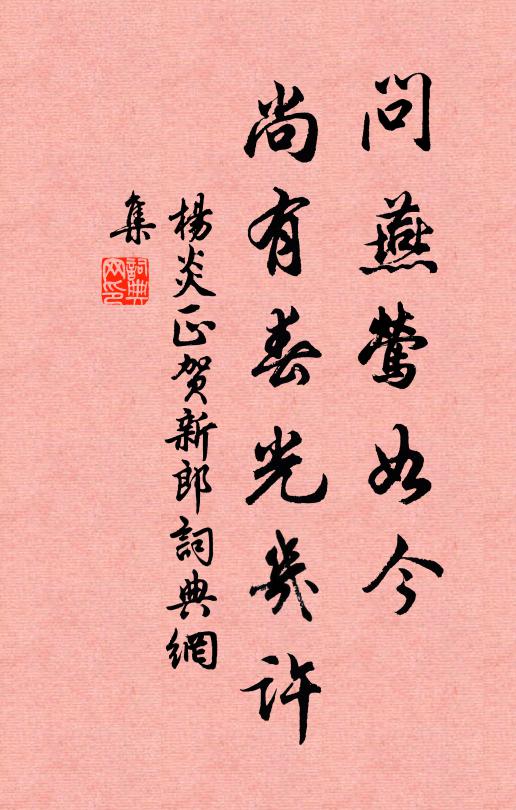 问燕莺如今
尚有春光几许
楊炎正贺新郎詞典網
集
詞典
网印